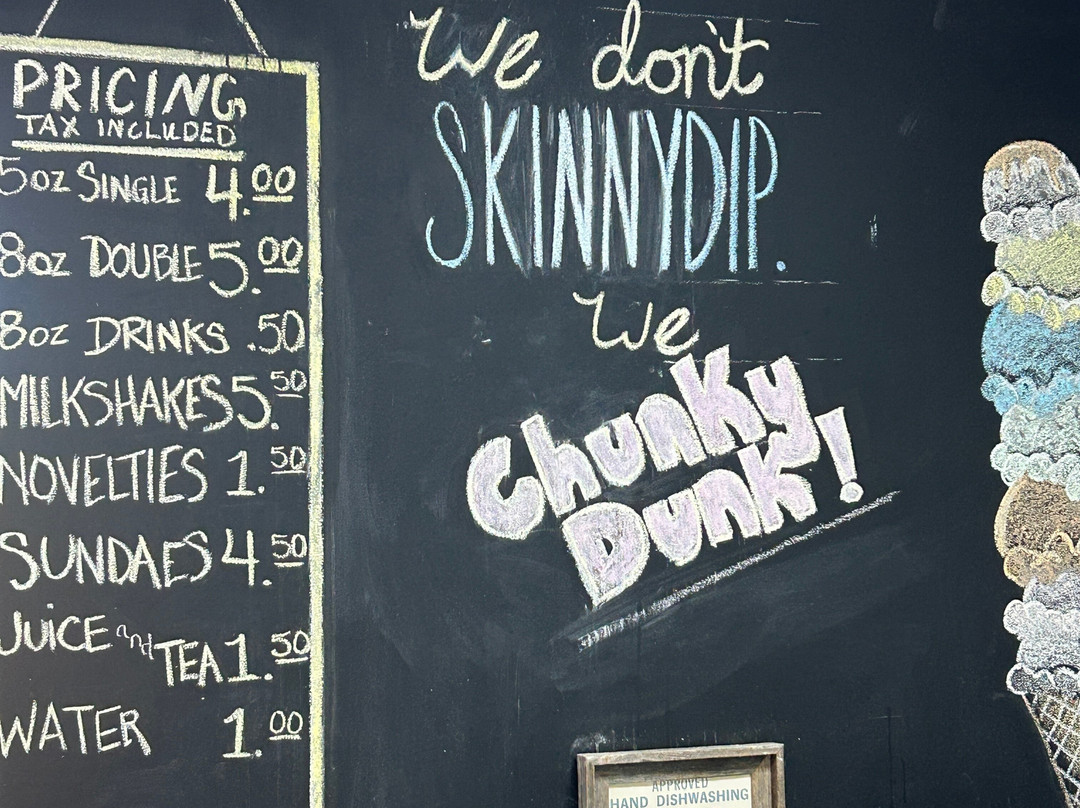 PRICING
TAX INCLUDED
5oz SINGLE 4.00
8oz DOUBLE 5.00
8oz DRINKS .50
MILKSHAKES 5.50
NOVELTIES 1.50
SUNDAES 4.50
JUICE and TEA 1.50
WATER 1.00
We don't
SKINNYDIP.
We
Chunky
Dunk!
APPROVED
HAND DISHWASHING